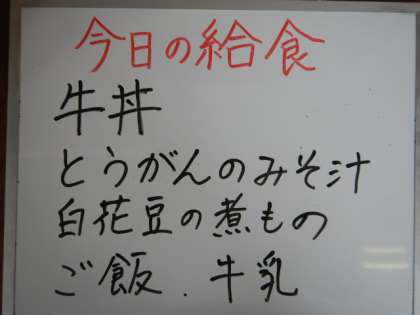 今日の給食
牛丼
とうがんのみそ汁
白花豆の煮もの
ご飯．牛乳